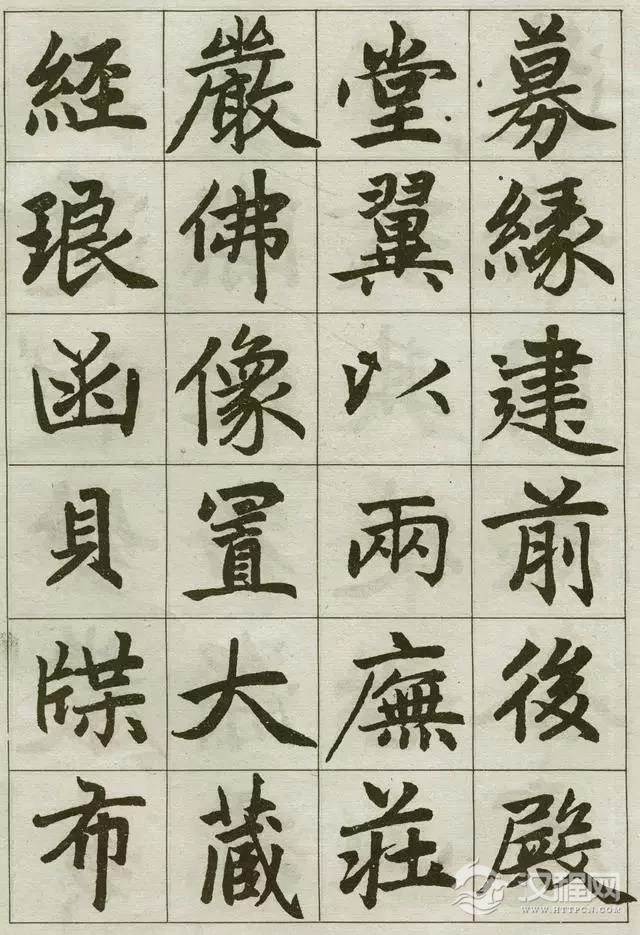 募緣建前後殿
堂翼以兩廡莊
嚴佛像置大藏
經琅函貝牒布
汉程网
WWW.HTTPCN.COM